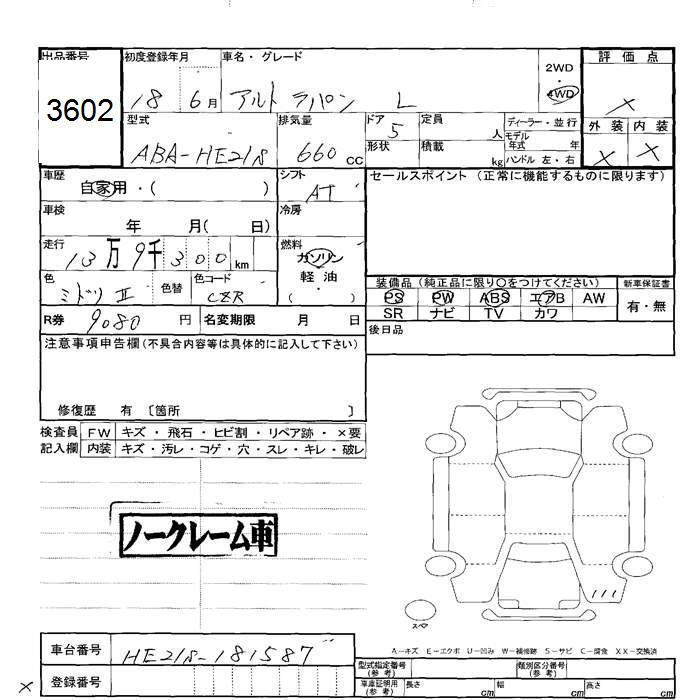 出品番号 初度登録年月 車名・グレード 2WD ・ 4WD 評価点
3602
18 6月 アルト ラパン L
×
型式 排気量 ドア 定員 ディーラー・並行 外装 内装
ABA-HE21S 660cc 5 人 モデル年式 年 × ×
形状 積載 kg ハンドル 左・右
車歴 シフト セールスポイント (正常に機能するものに限ります)
自家用・( ) AT
車検 冷房
年 月( 日)
走行 燃料
13万9千300km ガソリン
軽油
( )
色 色替 色コード
ミドリ II CZR
装備品(純正品に限り○をつけてください) 新車保証書
PS PW ABS エアB AW 有・無
SR ナビ TV カワ
R券 9080 円 名変期限 月 日
後日品
注意事項申告欄(不具合内容等は具体的に記入して下さい)
修復歴 有 〔箇所 〕
検査員 FW キズ・飛石・ヒビ割・リペア跡・×要
記入欄 内装 キズ・汚レ・コゲ・穴・スレ・キレ・破レ
ノークレーム車
スペア
A…キズ E…エクボ U…凹み W…補修跡 S…サビ C…腐食 XX…交換済
車台番号 HE21S-181587
登録番号
×
型式指定番号(参考) 類別区分番号(参考)
車庫証明用(参考) 長さ cm 幅 cm 高さ cm